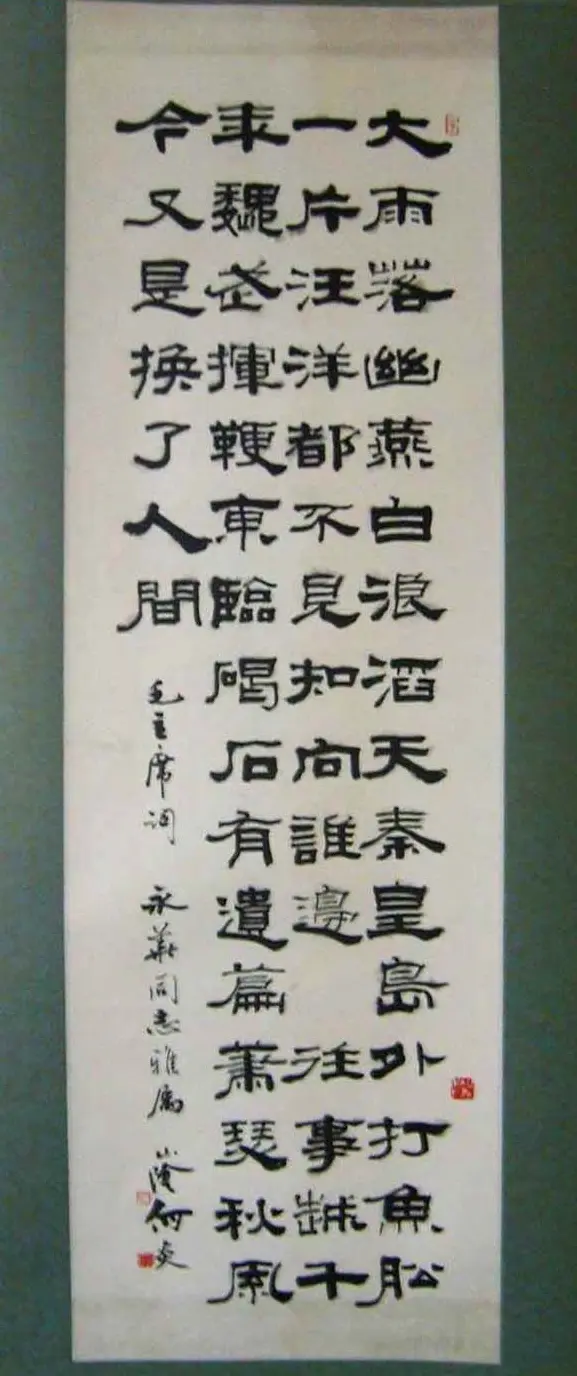 大雨落幽燕白浪滔天秦皇島外打魚船
一片汪洋都不見知向誰邊 往事越千
年魏武揮鞭東臨碣石有遺篇蕭瑟秋風
今又是換了人間
毛主席词 永華同志雅属 山陰何